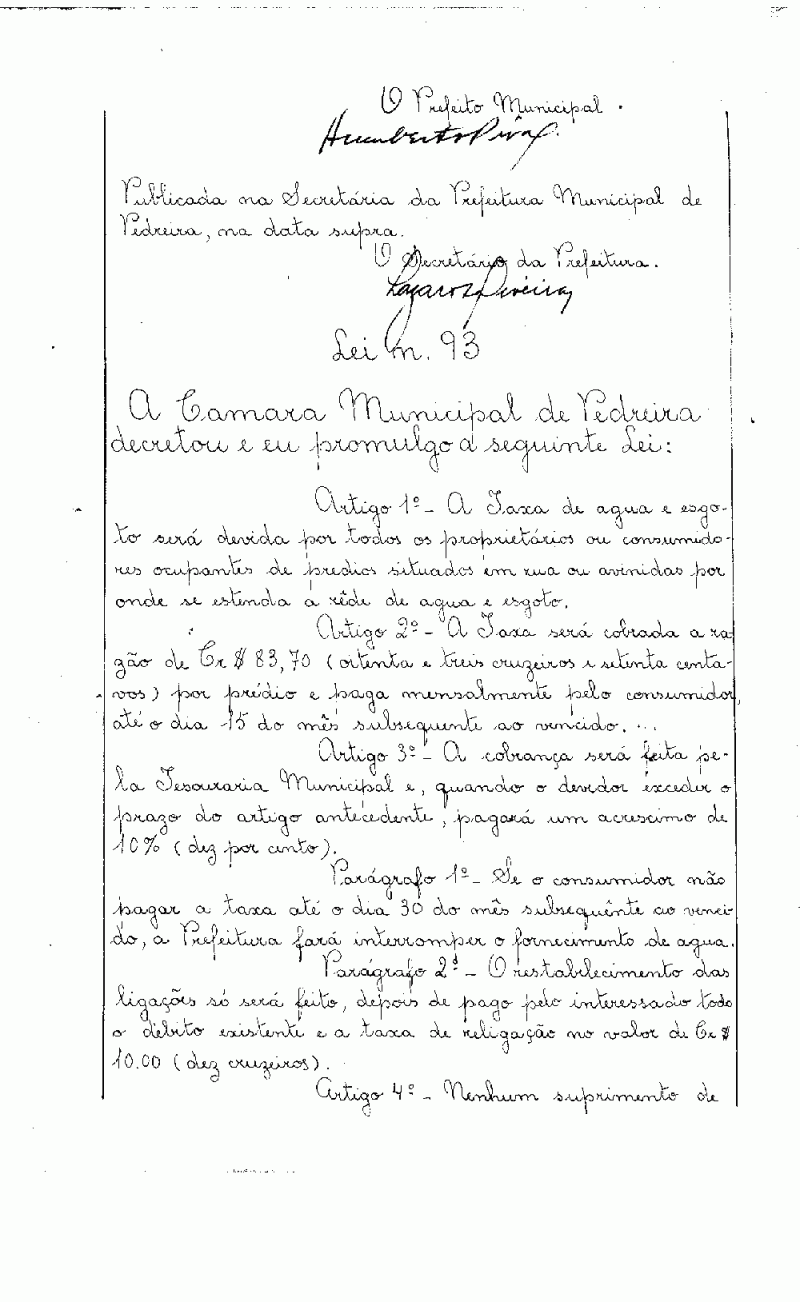 O Prefeito Municipal.
Humberto Piva
Publicada na Secretária da Prefeitura Municipal de
Pedreira, na data supra.
O Secretário da Prefeitura.
Lei n. 93
A Camara Municipal de Pedreira
decretou e eu promulgo a seguinte Lei:
Artigo 1º - A Taxa de agua e esgo-
to será devida por todos os proprietários ou consumido-
res ocupantes de predios situados em rua ou avinidas por
onde se estenda a rêde de agua e esgoto.
Artigo 2º - A Taxa será cobrada a ra
zão de Cr$ 83,70 (oitenta e treis cruzeiros e setenta centa-
vos) por prédio e paga mensalmente pelo consumidor,
até o dia 15 do mês subsequente ao vencido.
Artigo 3º - A cobrança será feita pe-
la Tesouraria Municipal e, quando o devedor exceder o
prazo do artigo antecedente, pagará um acrescimo de
10% (dez por cento).
Parágrafo 1º - Se o consumidor não
pagar a taxa até o dia 30 do mês subsequênte ao venci
do, a Prefeitura fará interromper o fornecimento de agua.
Parágrafo 2º - O restabelecimento das
ligações só será feito, depois de pago pelo interessado todo
o débito existente e a taxa de religação no valor de Cr$
10.00 (dez cruzeiros).
Artigo 4º - Nenhum suprimento de